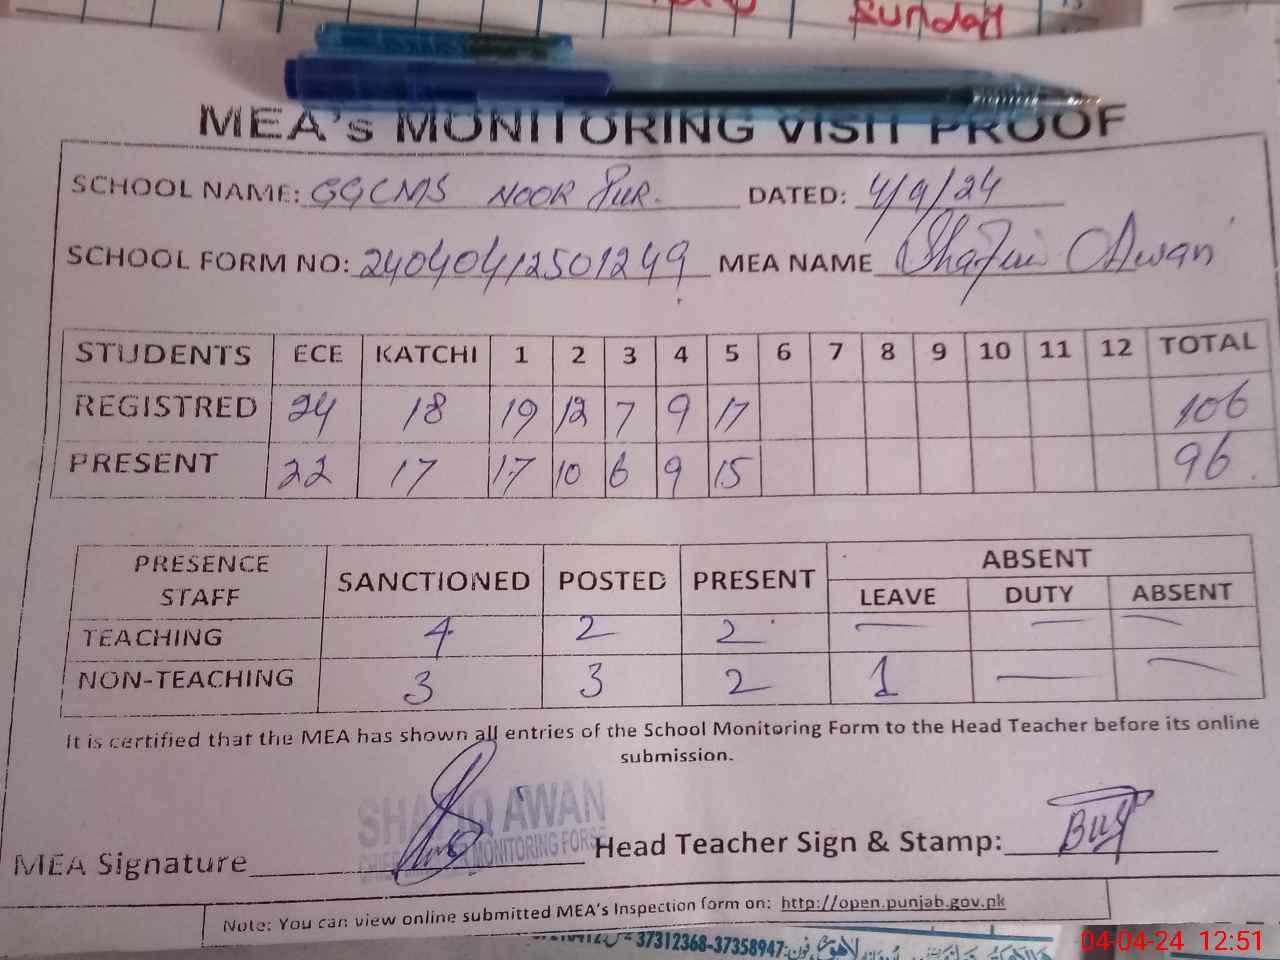 sunday
MEA's MONITORING VISIT PROOF
SCHOOL NAME: GGCMS NOOR PUR. DATED: 4/9/24
SCHOOL FORM NO: 24040412501249 MEA NAME Shafiq Awan
STUDENTS ECE KATCHI 1 2 3 4 5 6 7 8 9 10 11 12 TOTAL
REGISTRED 24 18 19 12 7 9 17 106
PRESENT 22 17 17 10 6 9 15 96
PRESENCE STAFF SANCTIONED POSTED PRESENT ABSENT
LEAVE DUTY ABSENT
TEACHING 4 2 2 — — —
NON-TEACHING 3 3 2 1 — —
It is certified that the MEA has shown all entries of the School Monitoring Form to the Head Teacher before its online
submission.
SHAFIQ AWAN
MONITORING FORSE
MEA Signature Head Teacher Sign & Stamp:
Note: You can view online submitted MEA's Inspection form on: http://open.punjab.gov.pk
37312368-37358947
04-04-24 12:51